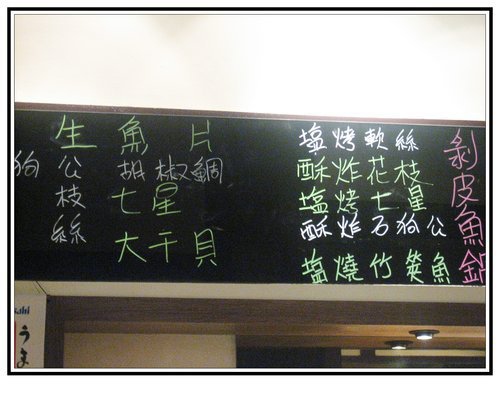 剝皮魚鍋
塩烤軟絲
酥炸花枝
塩烤七星
酥炸石狗公
塩燒竹筴魚
生魚片
胡椒鯛
七星
大干貝
公
枝
絲
狗
sahi
うま